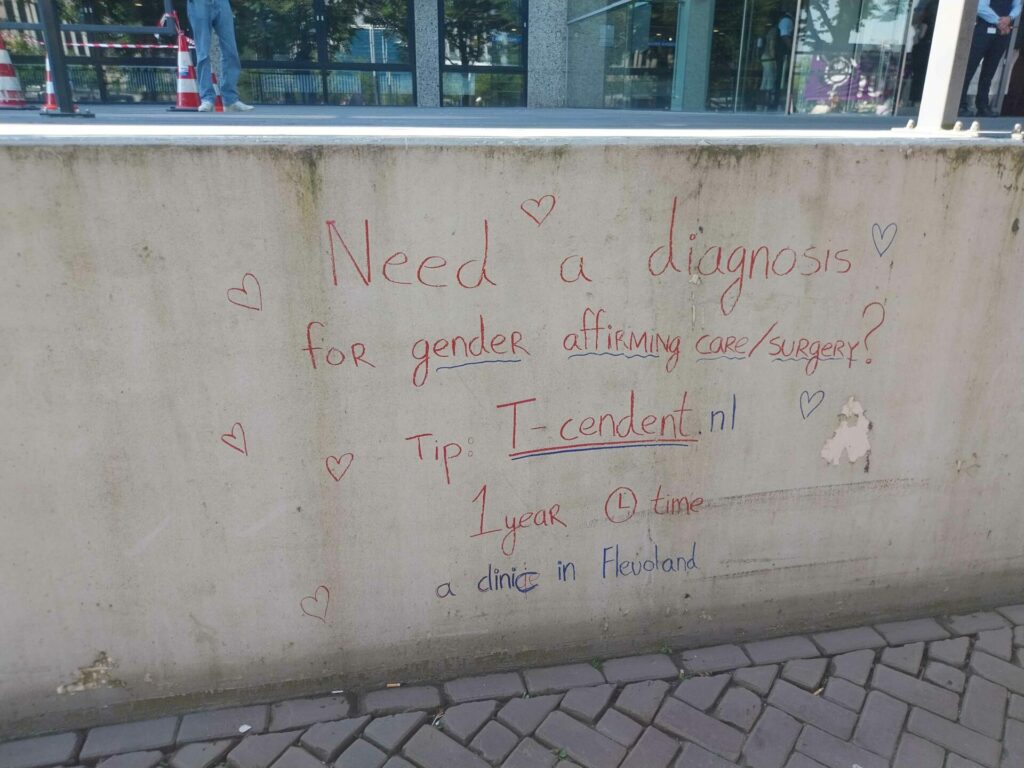 Need a diagnosis
for gender affirming care/surgery?
Tip: T-cendent.nl
1 year time
a clinic in Flevoland